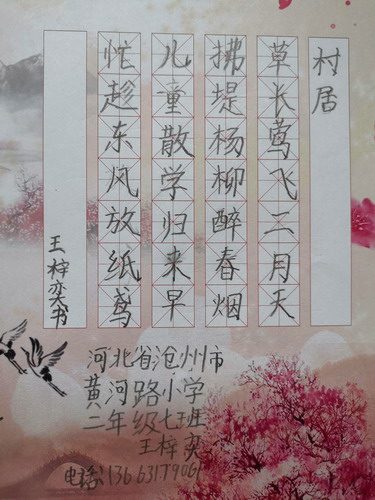 村居
草长莺飞二月天
拂堤杨柳醉春烟
儿童散学归来早
忙趁东风放纸鸢
王梓奕书
河北省沧州市
黄河路小学
二年级七班
王梓奕
电话:13663179061